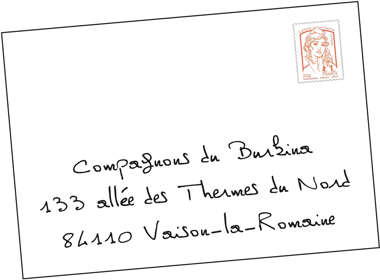 Compagnons du Burkina
133 allée des Thermes du Nord
84110 Vaison-la-Romaine